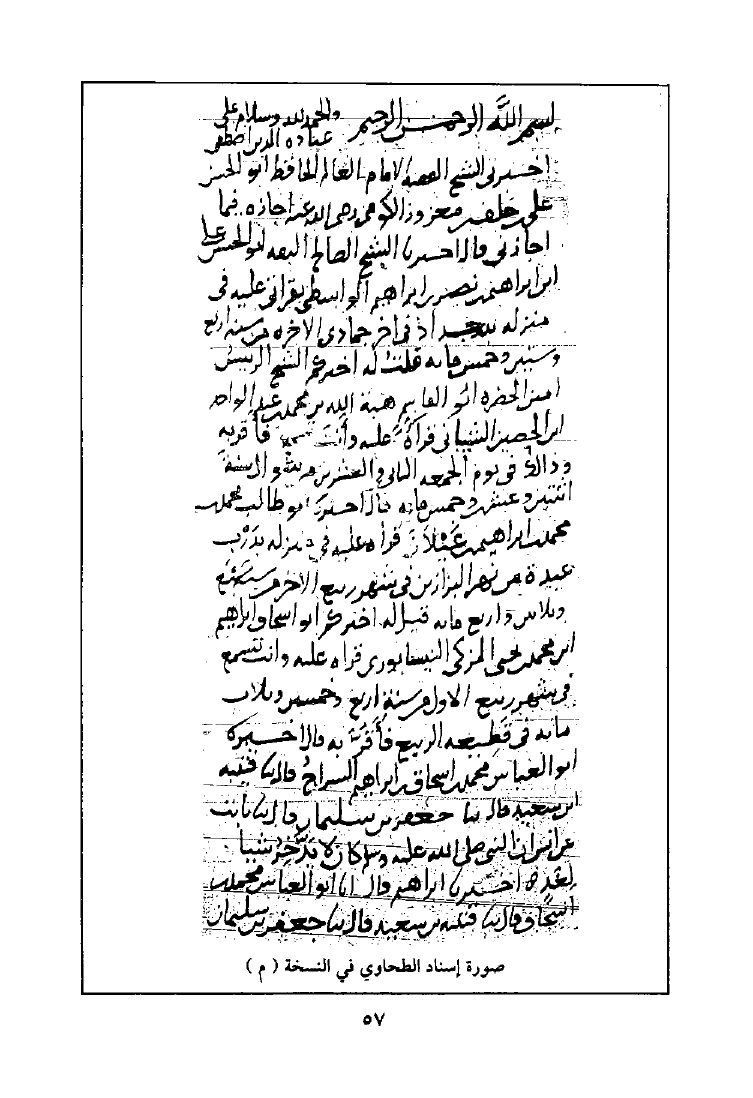 بسم الله الرحمن الرحيم والحمد لله وسلام على
عباده الذين اصطفى
اخبرني الشيخ الفقيه الامام العالم الحافظ ابو الحسن
على بن خلف بن معزوز الكومي رحمه الله عنه اجازه فيما
اجاز لي قال اخبرنا الشيخ الصالح الثقه ابو الحسن على
ابن ابراهيم بن نصر بن ابراهيم الواسطي بقراتي عليه في
منزله ببغداد في اخر جمادى الاخره من سنه اربع
وستين وخمس مايه قلت له اخبركم الشيخ الرييس
امين الحضره ابو القاسم هبة الله بن محمد بن عبد الواحد
ابن الحصين الشيباني قراة عليه وأنت تسمع فأقر به
وذالك في يوم الجمعه الثاني والعشرين من شوال سنة
اثنتين وعشرين وخمس مايه قال اخبرنا ابو طالب محمد بن
محمد بن ابراهيم بن غَيْلاَن قراه عليه في منزله بدَرْب
عبدة من نهر البزازين في شهر ربيع الاخر من سنة تسع
وثلاثين واربع مايه قيل له اخبركم ابو اسحاق ابراهيم
ابن محمد بن يحيى المزكى النيسابوري قراه عليه وانت تسمع
في شهر ربيع الاول من سنة اربع وخمسين وثلاث
مايه في قطيعه الربيع فأقَرَّ به قال اخبركم
ابو العباس محمد بن اسحاق بن ابراهيم السراج قال ثنا قتيبه
ابن سعيد قال ثنا جعفر بن سليمان قال ثنا ثابت
عن انس ان النبي صلى الله عليه وسلم كان لا يدَّخِرُ شيا
لغد اخبرنا ابراهيم قال انا ابو العباس محمد بن
اسحاق قال ثنا قتيبه بن سعيد قال ثنا جعفر بن سليمان
صورة إسناد الطحاوي في النسخة ( م )
٥٧